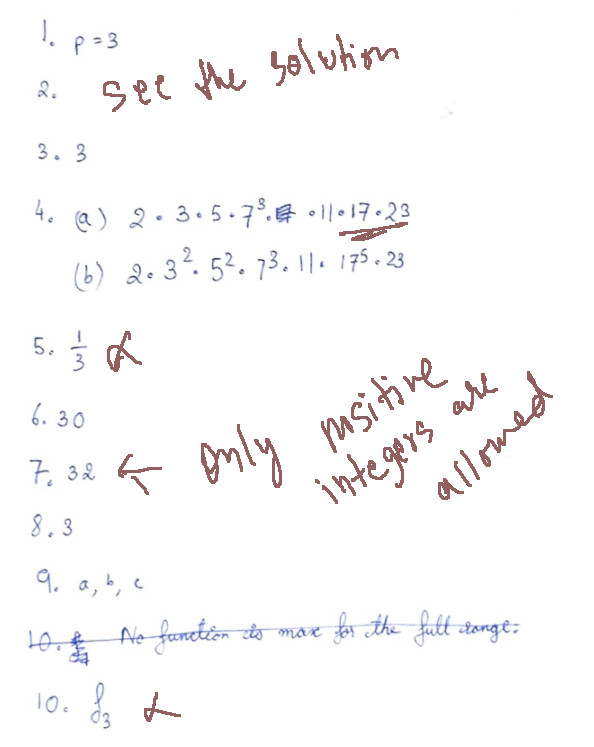 1. p = 3
2. See the solution
3. 3
4. (a) 2 · 3 · 5 · 7³ · 11 · 17 · 23
(b) 2 · 3² · 5² · 7³ · 11 · 17⁵ · 23
5. 1/3
6. 30
7. 32 ← only positive integers are allowed
8. 3
9. a, b, c
10. No function is max for the full range.
10. f₃